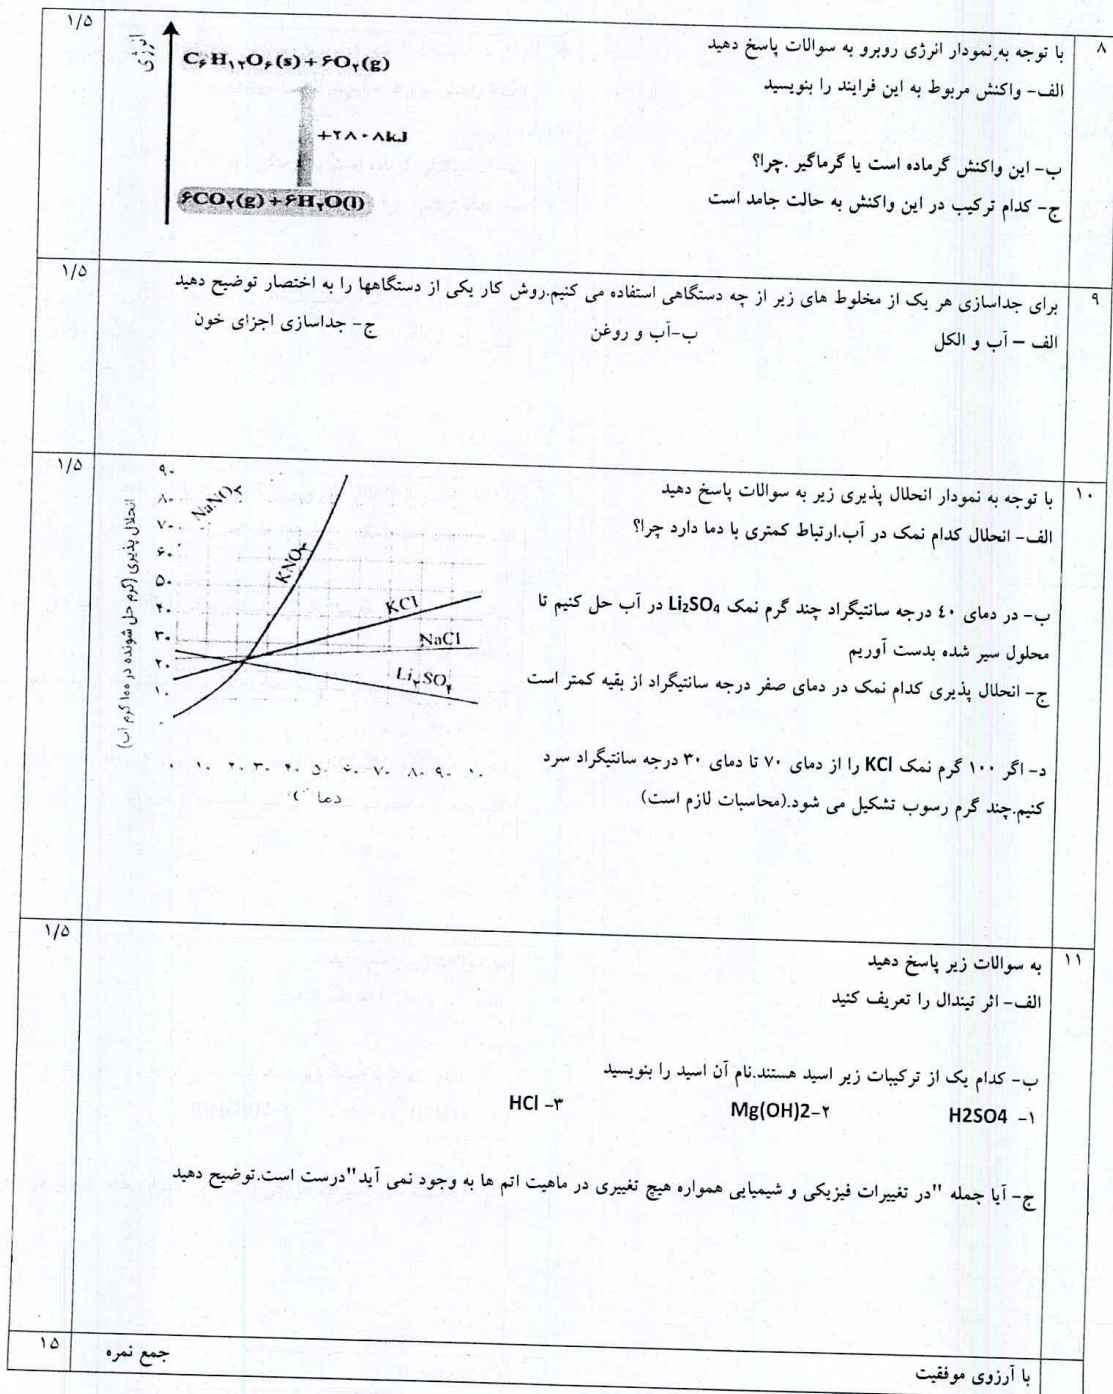 ۸
با توجه به نمودار انرژی روبرو به سوالات پاسخ دهید
۱/۵
الف- واکنش مربوط به این فرایند را بنویسید
ب- این واکنش گرماده است یا گرماگیر .چرا؟
ج- کدام ترکیب در این واکنش به حالت جامد است
انرژی
C۶H۱۲O۶(s)+۶O۲(g)
+۲۸۰۸kJ
۶CO۲(g)+۶H۲O(l)
۹
برای جداسازی هر یک از مخلوط های زیر از چه دستگاهی استفاده می کنیم.روش کار یکی از دستگاهها را به اختصار توضیح دهید
۱/۵
الف – آب و الکل ب-آب و روغن ج- جداسازی اجزای خون
۱۰
با توجه به نمودار انحلال پذیری زیر به سوالات پاسخ دهید
۱/۵
الف- انحلال کدام نمک در آب.ارتباط کمتری با دما دارد چرا؟
ب- در دمای ٤٠ درجه سانتیگراد چند گرم نمک Li2SO4 در آب حل کنیم تا
محلول سیر شده بدست آوریم
ج- انحلال پذیری کدام نمک در دمای صفر درجه سانتیگراد از بقیه کمتر است
د- اگر ۱۰۰ گرم نمک KCl را از دمای ۷۰ تا دمای ۳۰ درجه سانتیگراد سرد
کنیم.چند گرم رسوب تشکیل می شود.(محاسبات لازم است)
انحلال پذیری (گرم حل شونده در ۱۰۰ گرم آب)
۹۰
۸۰
۷۰
۶۰
۵۰
۴۰
۳۰
۲۰
۱۰
۰
NaNO۳
KNO۳
KCl
NaCl
Li۲SO۴
۰ ۱۰ ۲۰ ۳۰ ۴۰ ۵۰ ۶۰ ۷۰ ۸۰ ۹۰ ۱۰
دما
۱۱
به سوالات زیر پاسخ دهید
۱/۵
الف- اثر تیندال را تعریف کنید
ب- کدام یک از ترکیبات زیر اسید هستند.نام آن اسید را بنویسید
۱- H2SO4 ۲-Mg(OH)2 ۳- HCl
ج- آیا جمله "در تغییرات فیزیکی و شیمیایی همواره هیچ تغییری در ماهیت اتم ها به وجود نمی آید"درست است.توضیح دهید
جمع نمره
۱۵
با آرزوی موفقیت